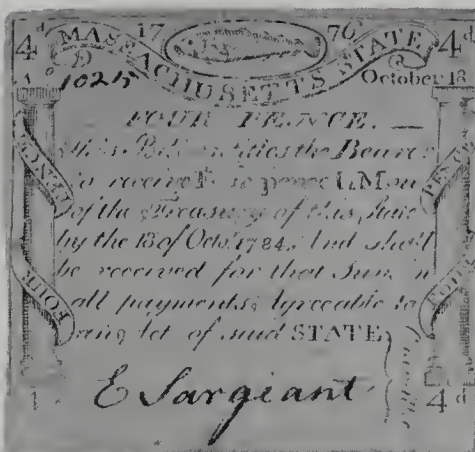 4d 17 76 4d
MASSACHUSETTS STATE
No 1025 October 18
FOUR PENCE.
This Bill entitles the Bearer
to receive Four pence L. Mon
of the Treasury of this State
by the 18 of Octr. 1784. And shall
be received for that Sum in
all payments Agreeable to
an Act of said STATE
FOUR PENCE
FOUR PENCE
E Sargiant
4d